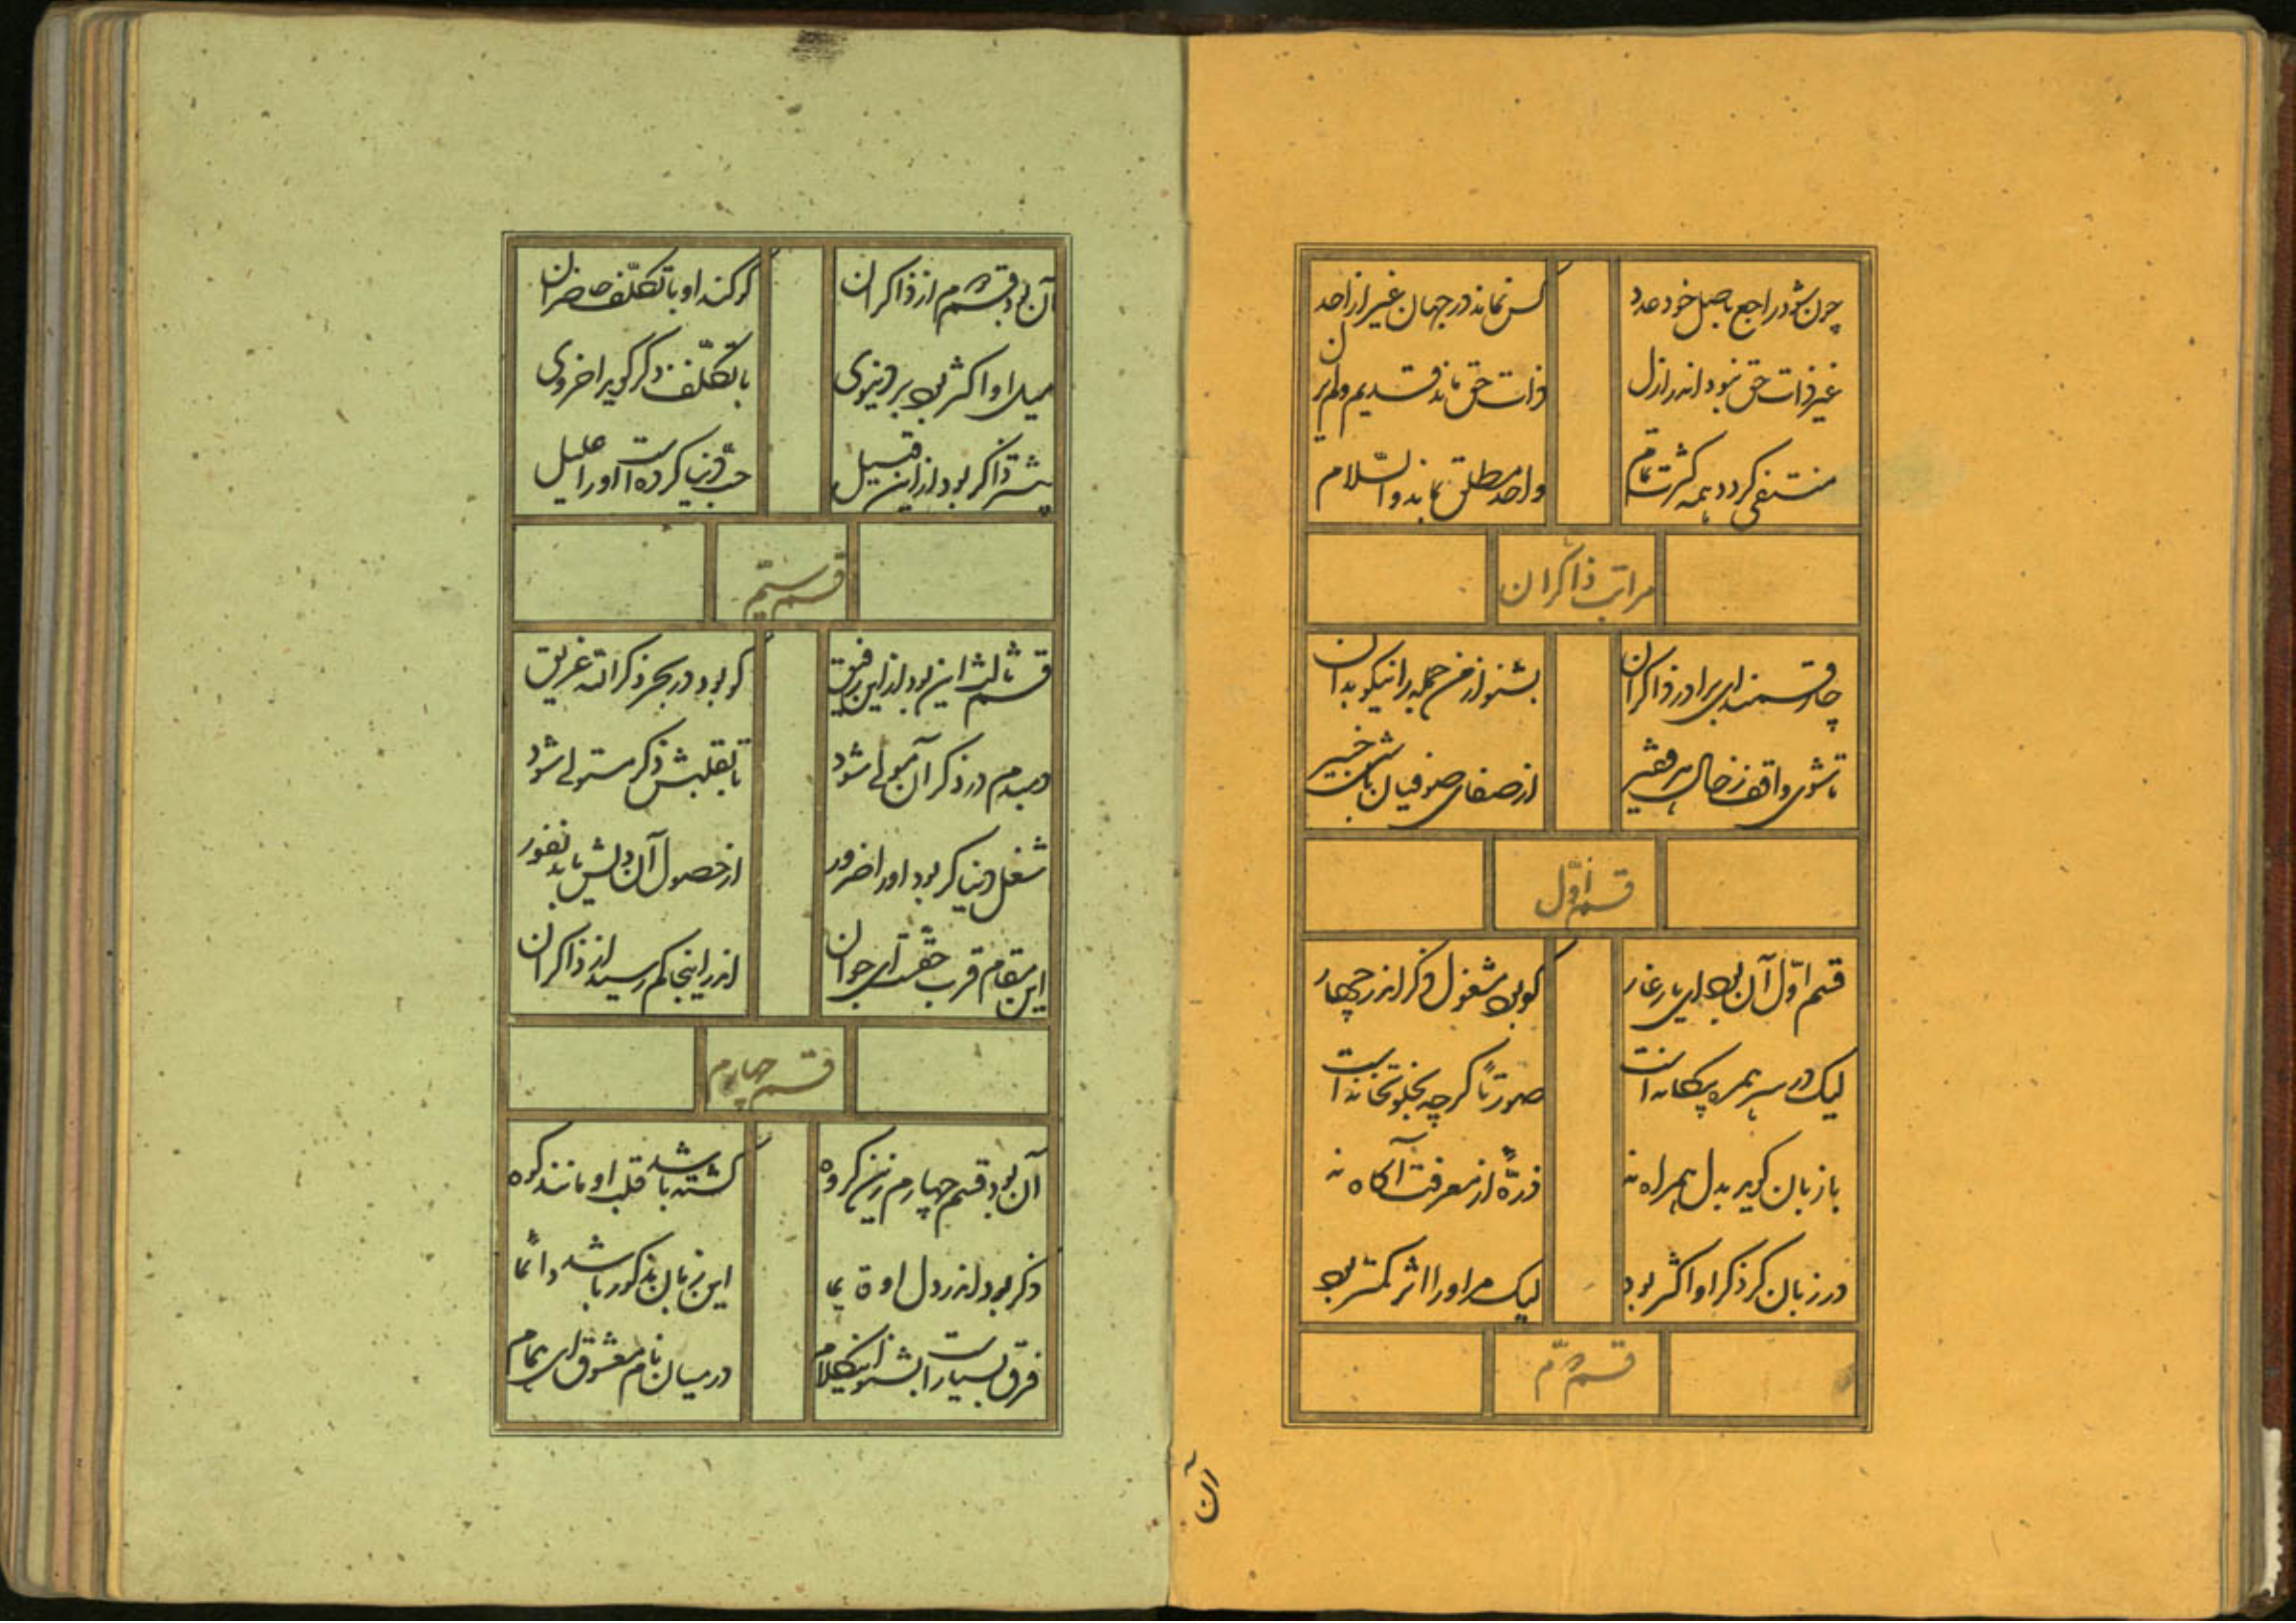 چون شود راجع باصل خود عدد کس نماند در جهان غیر از احد
غیر ذات حق نبود اندر ازل ذات حق ماند قدیم و لم یزل
منتفی گردد همه کثرت تمام واحد مطلق بماند والسّلام
مراتب ذاکران
چار قسمند ای برادر ذاکران بشنو از من جمله را نیکو بدان
تا شوی واقف ز حال هر فقیر از صفای صوفیان باشی خبیر
قسم اوّل
قسم اوّل آن بود ای یار غار کو بود مشغول ذکر اندر چهار
لیک در سر همره بیگانه است صورتاً گرچه بخلوتخانه است
با زبان گوید بدل همراه نه ذرّهٔ از معرفت آگاه نه
در زبان گر ذکر او اکثر بود لیک مر او را اثر کمتر بود
قسم دوّم
آن
آن بود قسم دوم از ذاکران گر کند او با تکلّف حاضر آن
میل او اکثر بود بر دنیوی با تکلّف ذکر گوید اخروی
بیشتر ذاکر بود از این قبیل حبّ دنیا کرده است او را علیل
قسم سیّم
قسم ثالث این بود از این رفیق کو بود در بحر ذکر الله غریق
دمبدم در ذکر آن مولی شود تا بقلبش ذکر مستولی شود
شغل دنیا گر بود او را ضرور از حصول آن دلش باید نفور
این مقام قرب حقّست ای جوان اندر اینجا کم رسید از ذاکران
قسم چهارم
آن بود قسم چهارم زین گروه گشته باشد قلب او مانند کوه
ذکر بود اندر دل او این زبان مذکور باشد دائما
فرق بسیار است بشنو اینکلام در میان نام معشوق ای همام